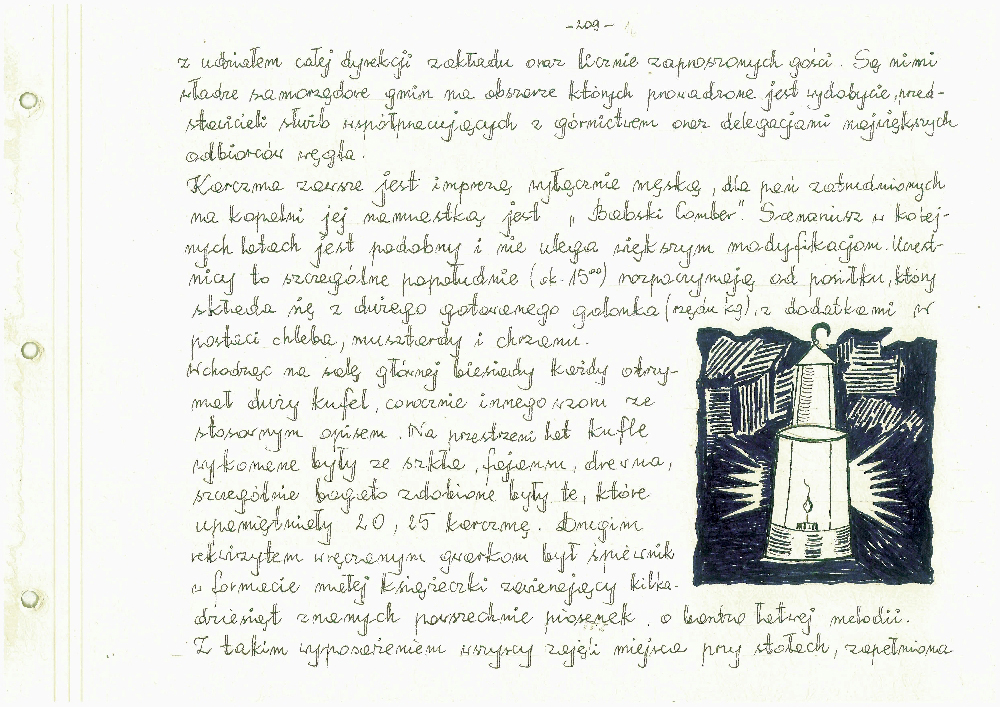 -209-
z udziałem całej dyrekcji zakładu oraz licznie zaproszonych gości. Są nimi
władze samorządowe gmin na obszarze których prowadzone jest wydobycie, przed-
stawiciele służb współpracujących z górnictwem oraz delegacjami największych
odbiorców węgla.
Karczma zawsze jest imprezą wyłącznie męską, dla pań zatrudnionych
na kopalni jej namiastką jest „Babski Comber". Scenariusz w kolej-
nych latach jest podobny i nie ulega większym modyfikacjom. Uczest-
nicy to szczególne popołudnie (ok. 15⁰⁰) rozpoczynają od posiłku, który
składa się z dużego gotowanego golonka (rzędu kg), z dodatkami w
postaci chleba, musztardy i chrzanu.
Wchodząc na salę głównej biesiady każdy otrzy-
mał duży kufel, corocznie innego wzoru ze
stosownym opisem. Na przestrzeni lat kufle
wykonane były ze szkła, fajansu, drewna,
szczególnie bogato zdobione były te, które
upamiętniały 20, 25 karczmę. Drugim
rekwizytem wręczanym gwarkom był śpiewnik
w formacie małej książeczki zawierający kilka-
dziesiąt znanych powszechnie piosenek o bardzo łatwej melodii.
Z takim wyposażeniem wszyscy zajęli miejsca przy stołach, zapełniona